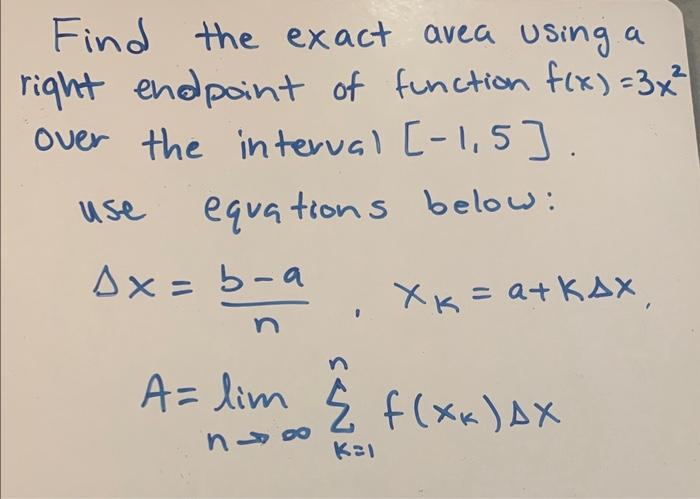 Find the exact area using a
right endpoint of function f(x) = 3x²
over the interval [-1, 5].
use equations below:
Δx = (b-a)/n , xₖ = a+kΔx,
A = lim n→∞ Σ k=1 n f(xₖ)Δx